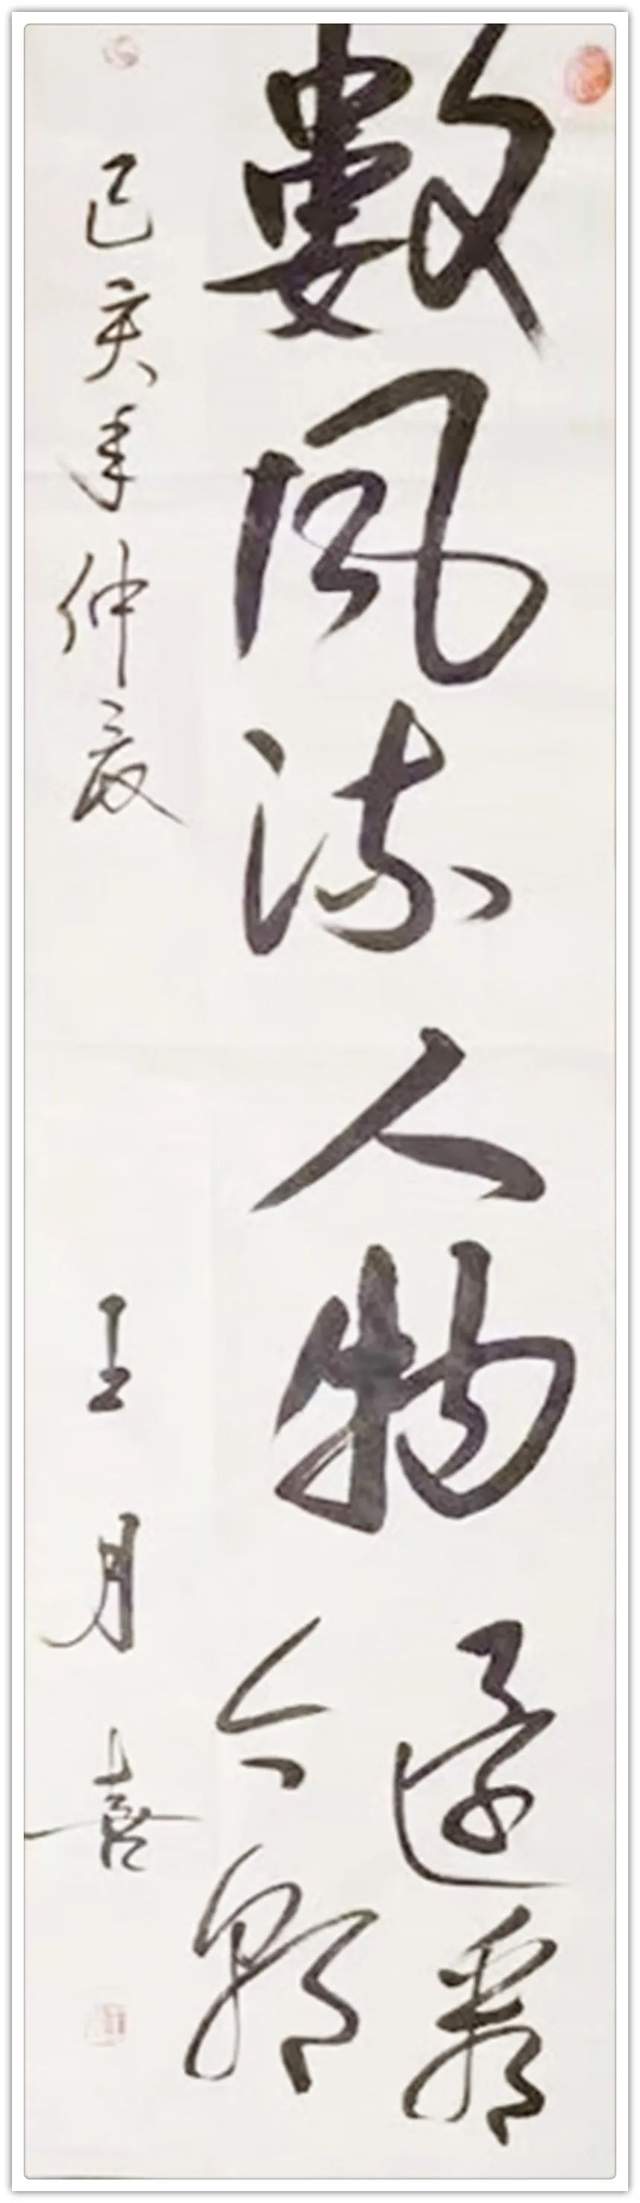 數風流人物
還看
今朝
己亥年仲辰
王月喜